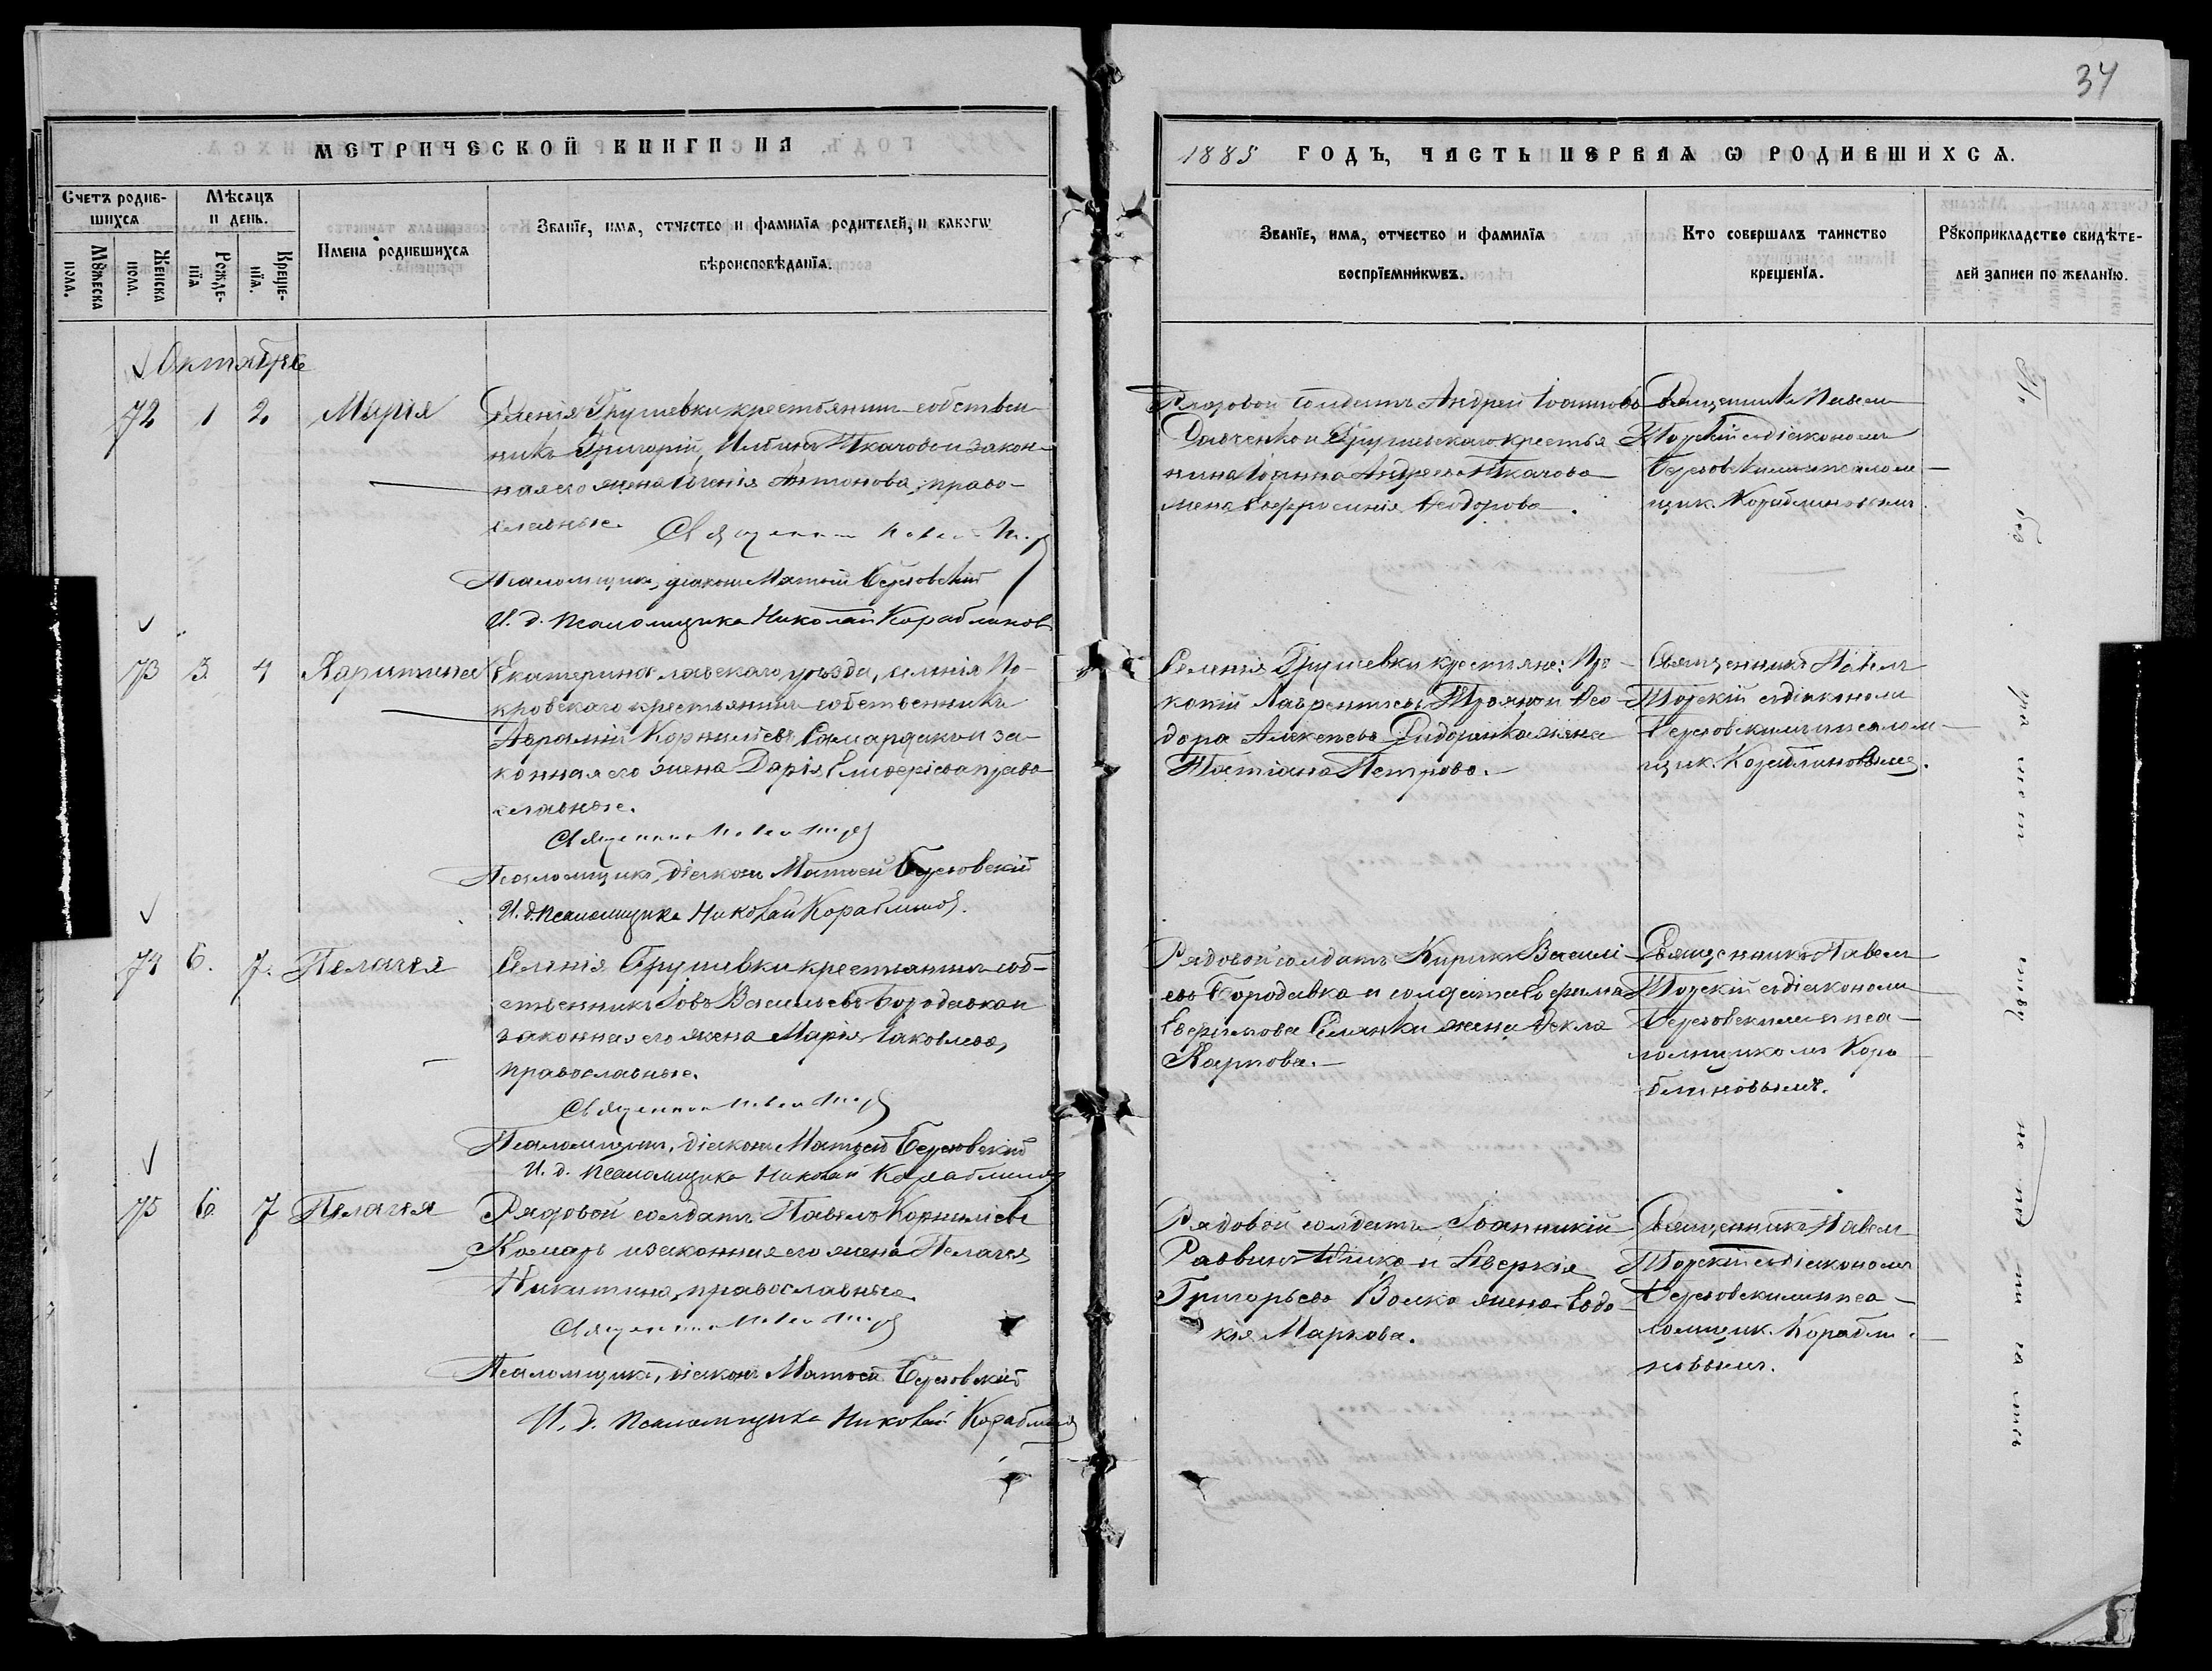 34
МЕТРИЧЕСКОЙ КНИГИ НА
1885 ГОДЪ, ЧАСТЬ ПЕРВАЯ Ѡ РОДИВШИХСЯ.
Счетъ родив-
шихся
Мѣсяцъ
и день.
Мꙋжеска
пола.
Женска
пола.
Рожде-
нїя
Креще-
нїя.
Имена родившихся
Званїе, имя, отчество и фамилїя родителей, и какогѡ
вѣроисповѣданїя.
Званїе, имя, отчество и фамилїя
воспрїемникѡвъ.
Кто совершалъ таинство
крещенїя.
Рꙋкоприкладство свидѣте-
лей записи по желанїю.
Октябрь
72 1 2 Марія
Селенія Грушевки крестьянинъ-собствен-
никъ Григорій Ильинъ Ткачовъ и закон-
ная его жена Евгенія Антонова, право-
славные.
Священникъ Павелъ
Псаломщикъ, діаконъ Матѳей Березовскій
И. д. псаломщика Николай Кораблиновъ
Рядовой солдатъ Андрей Іоанновъ
и Грушевскаго крестья-
нина Іоанна Андреева Ткачова
жена Евфросинія Ѳеодорова.
Священникъ Павелъ
Торскій съ діакономъ
Березовскимъ и псалом-
щик. Кораблиновымъ.
73 3 4 Харитина
Екатеринославскаго уѣзда, селенія По-
кровскаго крестьянинъ-собственникъ
Авраамій Корниліевъ и за-
конная его жена Дарія Елиѳеріева право-
славные.
Священникъ Павелъ
Псаломщикъ, діаконъ Матѳей Березовскій
И. д. псаломщика Николай Кораблиновъ.
Селенія Грушевки крестьяне: Про-
копій Лаврентьевъ Троянъ и Ѳео-
дора Алексѣева Сидоренка жена
Татіана Петрова.
Священникъ Павелъ
Торскій съ діакономъ
Березовскимъ и псалом-
щик. Кораблиновымъ.
74 6. 7. Пелагея
Селенія Грушевки крестьянинъ соб-
ственникъ Іовъ Васильевъ Бородавка и
законная его жена Марія Іаковлева,
православные.
Священникъ Павелъ
Псаломщикъ, діаконъ Матѳей Березовскій
И. д. псаломщика Николай Кораблиновъ
Рядовой солдатъ Кирикъ Василі-
евъ Бородавка и солдата Ефрема
жена Ѳекла
Карпова.
Священникъ Павелъ
Торскій съ діакономъ
Березовскимъ и пса-
ломщикомъ Кора-
блиновымъ.
75 6 7 Пелагея
Рядовой солдатъ Павелъ Корниліевъ
Комаръ и законная его жена Пелагея
Никитина, православные.
Священникъ Павелъ
Псаломщикъ, діаконъ Матѳей Березовскій
И. д. псаломщика Николай Кораблиновъ
Рядовой солдатъ Іоанникій
и Аверкія
Григорьева Волка жена Евдо-
кія Маркова.
Священникъ Павелъ
Торскій съ діакономъ
Березовскимъ и пса-
ломщик. Корабли-
новымъ.